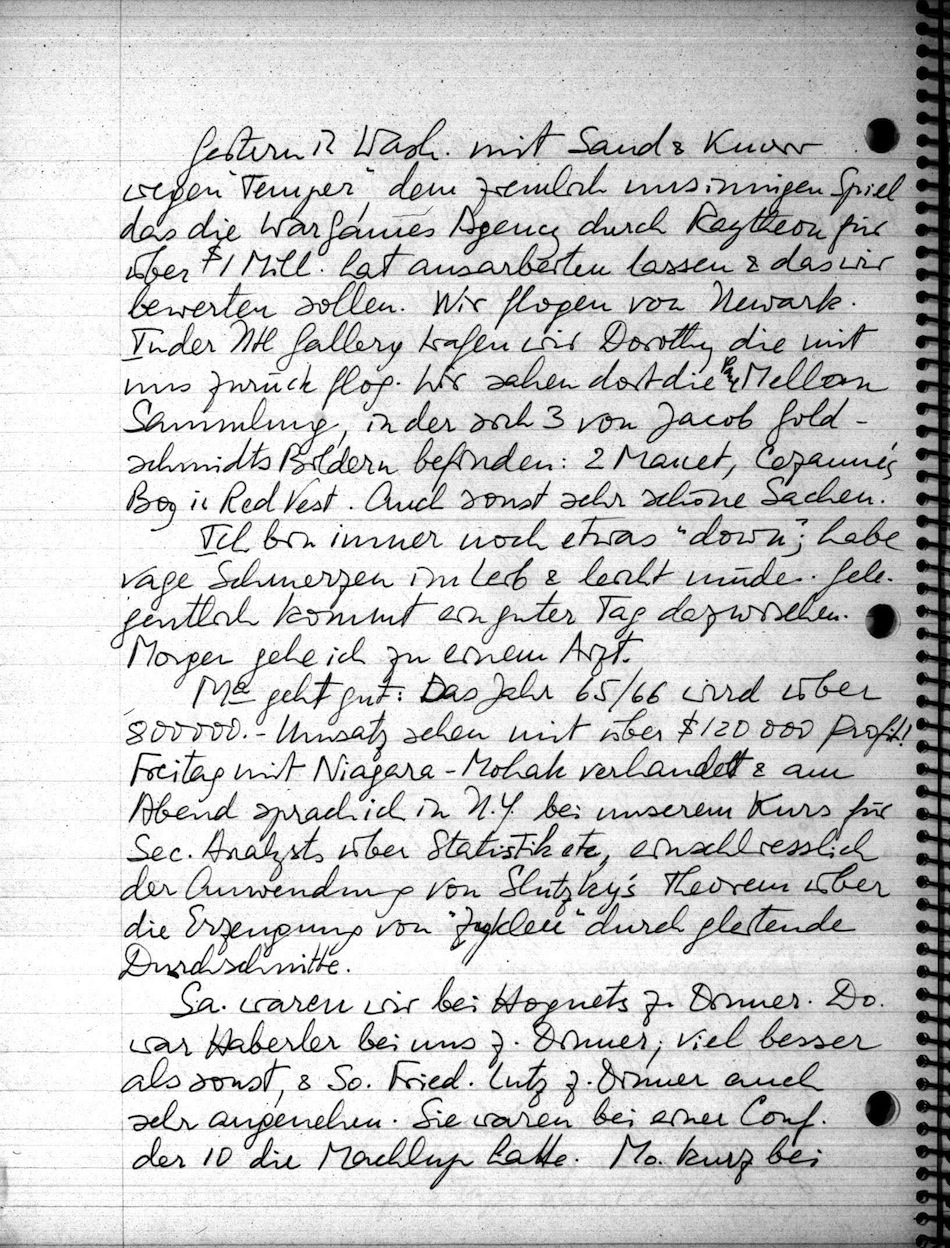 Gestern in Wash. mit Sand & Knorr
wegen "Temper", dem ziemlich unsinnigen Spiel
das die War Games Agency durch Raytheon für
über $1 Mill. hat ausarbeiten lassen & das wir
bewerten sollen. Wir flogen von Newark.
In der Ntl Gallery trafen wir Dorothy die mit
uns zurück flog. Wir sahen dort die Mellon
Sammlung, in der sich 3 von Jacob Gold-
schmidts Bildern befinden: 2 Manet, Cezanne's
Boy in Red Vest. Auch sonst sehr schöne Sachen.
Ich bin immer noch etwas "down"; habe
vage Schmerzen im Leib & leicht müde. Gele-
gentlich kommt ein guter Tag dazwischen.
Morgen gehe ich zu einem Arzt.
Ma geht gut: Das Jahr 65/66 wird über
800000.- Umsatz sehen mit über $120 000 Profit!
Freitag mit Niagara-Mohak verhandelt & am
Abend sprach ich in N.Y. bei unserem Kurs für
Sec. Analysts über Statistik etc, einschliesslich
der Anwendung von Slutzky's Theorem über
die Erzeugung von "Zyklen" durch gleitende
Durchschnitte.
Sa. waren wir bei Hognets z. Dinner. Do.
war Haberler bei uns z. Dinner; viel besser
als sonst, & So. Fried. Lutz z. Dinner auch
sehr angenehm. Sie waren bei einer Conf.
der 10 die Machlup hatte. Mo. kurz bei